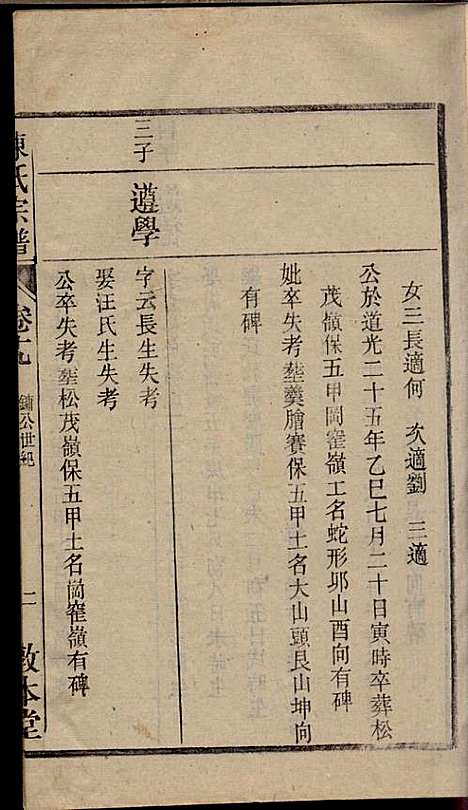 女三長適何　次適劉　三適
公於道光二十五年乙巳七月二十日寅時卒葬松
茂嶺保五甲崗窰嶺工名蛇形夘山酉向有碑
妣卒失考塟羹膾賽保五甲土名大山頭艮山坤向
有碑
三子
遵學
字云長生失考
娶汪氏生失考
公卒失考塟松茂嶺保五甲土名崗窰嶺有碑
陳氏宗譜
卷十九
鏞公世紀
二
敦本堂